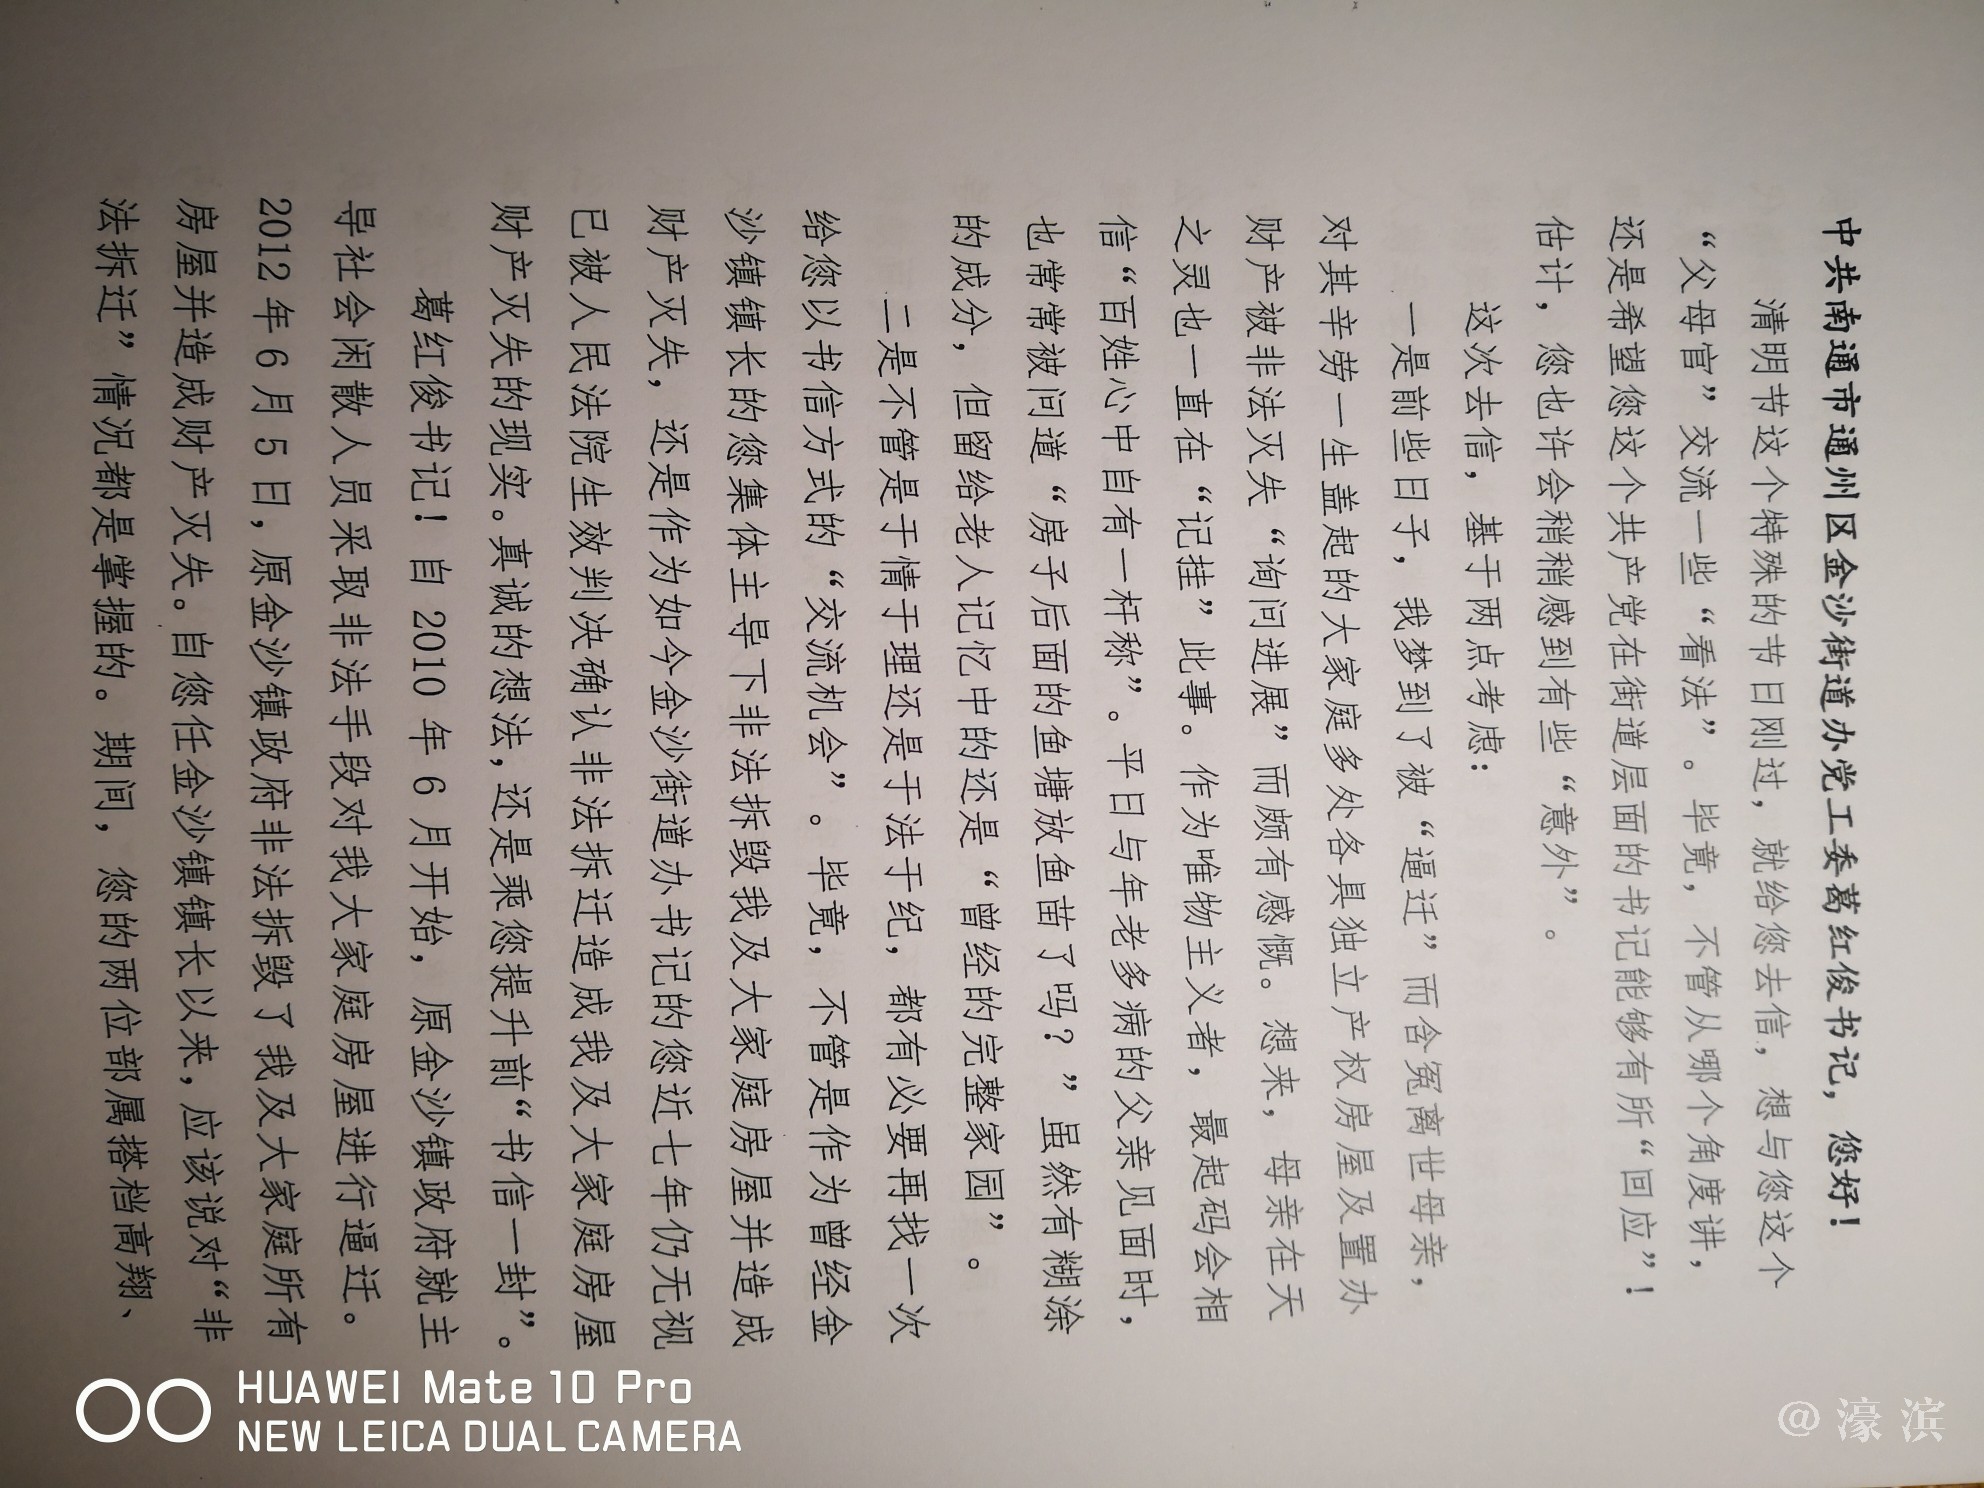 中共南通市通州区金沙街道办党工委葛红俊书记，您好！
清明节这个特殊的节日刚过，就给您去信，想与您这个
“父母官”交流一些“看法”。毕竟，不管从哪个角度讲，
还是希望您这个共产党在街道层面的书记能够有所“回应”！
估计，您也许会稍稍感到有些“意外”。
这次去信，基于两点考虑：
一是前些日子，我梦到了被“逼迁”而含冤离世母亲，
对其辛劳一生盖起的大家庭多处各具独立产权房屋及置办
财产被非法灭失“询问进展”而颇有感慨。想来，母亲在天
之灵也一直在“记挂”此事。作为唯物主义者，最起码会相
信“百姓心中自有一杆称”。平日与年老多病的父亲见面时，
也常常被问道“房子后面的鱼塘放鱼苗了吗？”虽然有糊涂
的成分，但留给老人记忆中的还是“曾经的完整家园”。
二是不管是于情于理还是于法于纪，都有必要再找一次
给您以书信方式的“交流机会”。毕竟，不管是作为曾经金
沙镇镇长的您集体主导下非法拆毁我及大家庭房屋并造成
财产灭失，还是作为如今金沙街道办书记的您近七年仍无视
已被人民法院生效判决确认非法拆迁造成我及大家庭房屋
财产灭失的现实。真诚的想法，还是乘您提升前“书信一封”。
葛红俊书记！自 2010 年 6 月开始，原金沙镇政府就主
导社会闲散人员采取非法手段对我大家庭房屋进行逼迁。
2012 年 6 月 5 日，原金沙镇政府非法拆毁了我及大家庭所有
房屋并造成财产灭失。自您任金沙镇镇长以来，应该说对“非
法拆迁”情况都是掌握的。期间，您的两位部属搭档高翔、
HUAWEI Mate 10 Pro
NEW LEICA DUAL CAMERA
@濠滨